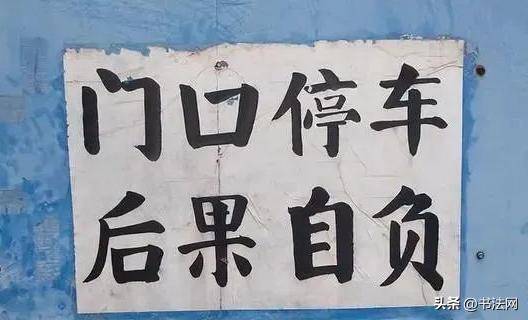 门口停车
后果自负
头条 @书法网